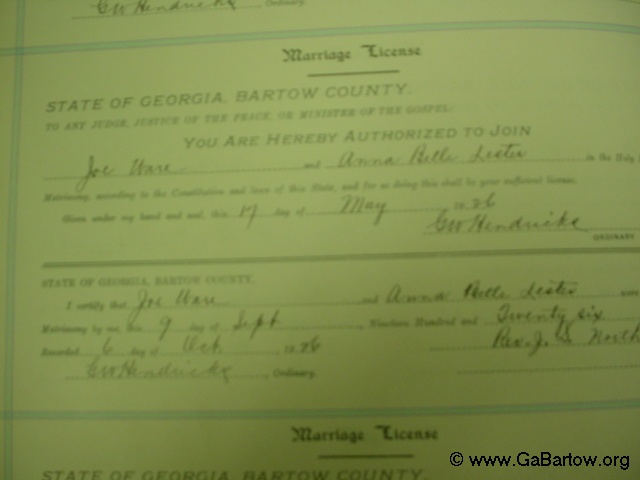 GW Hendricks, Ordinary.
Marriage License
STATE OF GEORGIA, BARTOW COUNTY.
TO ANY JUDGE, JUSTICE OF THE PEACE, OR MINISTER OF THE GOSPEL:
YOU ARE HEREBY AUTHORIZED TO JOIN
Joe Ware and Anna Belle Lester in the Holy
Matrimony, according to the Constitution and laws of this State, and for so doing this shall be your sufficient license.
Given under my hand and seal, this 17 day of May 1926
GW Hendricks
ORDINARY
STATE OF GEORGIA, BARTOW COUNTY.
I certify that Joe Ware and Anna Belle Lester were
Matrimony by me, this 9 day of Sept, Nineteen Hundred and Twenty six
Recorded 6 day of Oct 1926 Rev. J. North
GW Hendricks, Ordinary.
Marriage License
STATE OF GEORGIA, BARTOW COUNTY.
© www.GaBartow.org